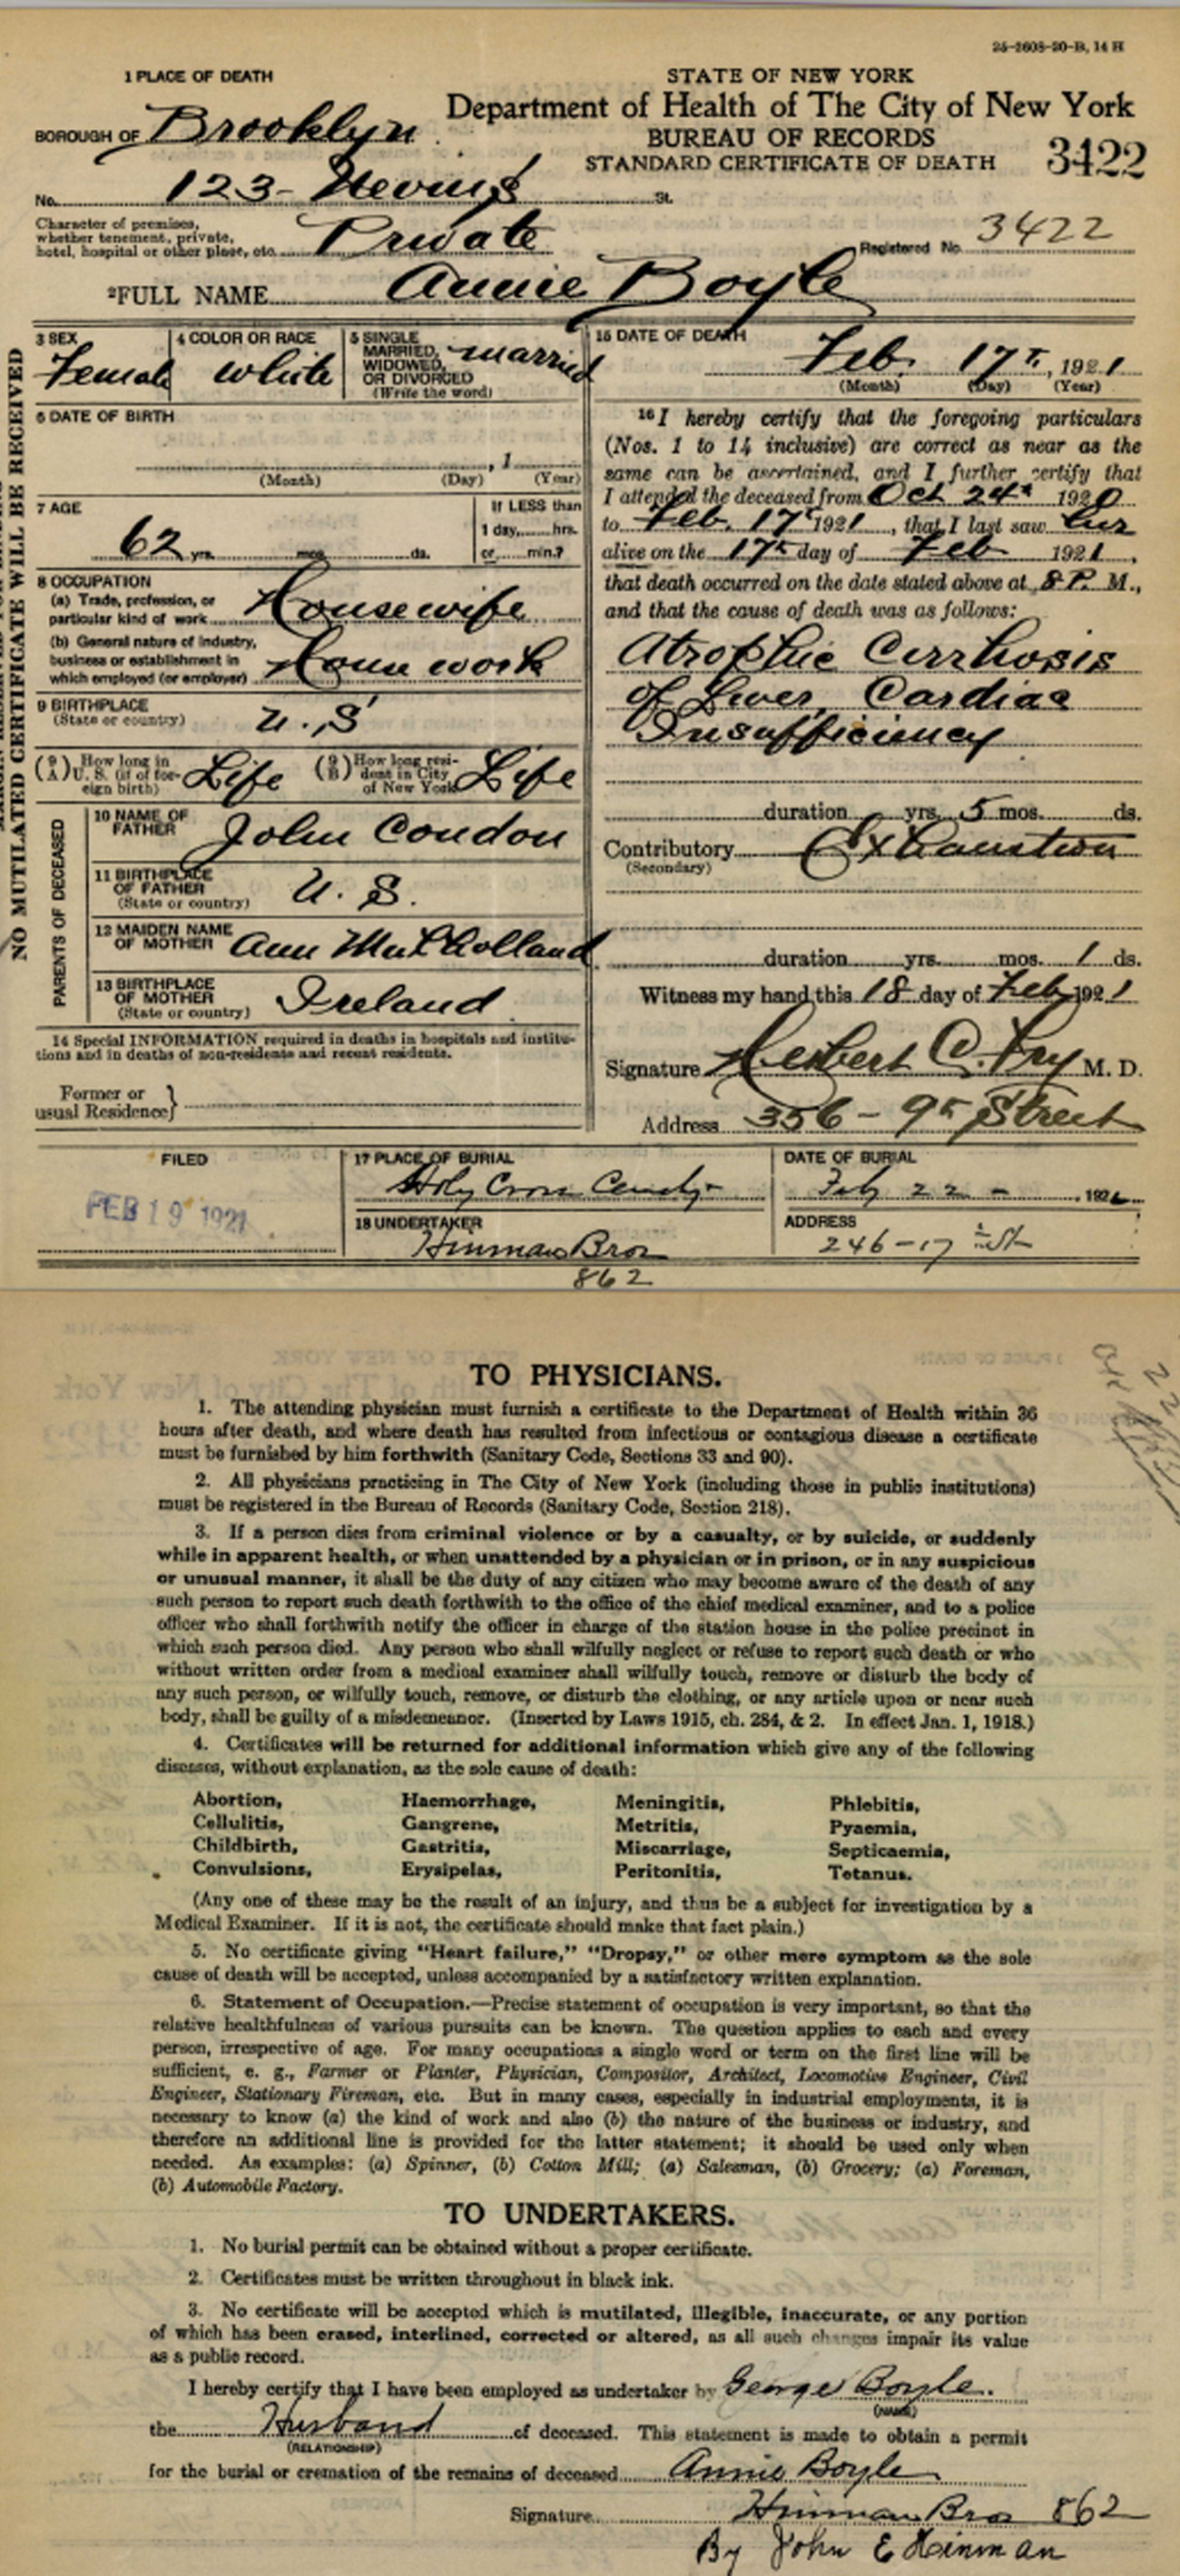 25-2608-20-B, 14 H
1 PLACE OF DEATH
STATE OF NEW YORK
Department of Health of The City of New York
BUREAU OF RECORDS
STANDARD CERTIFICATE OF DEATH 3422
BOROUGH OF Brooklyn
No. 123- Nevins St.
Character of premises,
whether tenement, private,
hotel, hospital or other place, etc. Private
Registered No. 3422
2 FULL NAME Annie Boyle
NO MUTILATED CERTIFICATE WILL BE RECEIVED
3 SEX Female
4 COLOR OR RACE white
5 SINGLE
MARRIED, married
WIDOWED,
OR DIVORCED
(Write the word)
6 DATE OF BIRTH
, 1
(Month) (Day) (Year)
7 AGE
62 yrs. mos. ds.
If LESS than
1 day, hrs.
or min.?
8 OCCUPATION
(a) Trade, profession, or
particular kind of work Housewife
(b) General nature of industry,
business or establishment in
which employed (or employer) House work
9 BIRTHPLACE
(State or country) U.S
(9 A) How long in
U. S. (if of for-
eign birth) Life
(9 B) How long resi-
dent in City
of New York Life
PARENTS OF DECEASED
10 NAME OF
FATHER John Condon
11 BIRTHPLACE
OF FATHER
(State or country) U. S.
12 MAIDEN NAME
OF MOTHER Ann Mulholland
13 BIRTHPLACE
OF MOTHER
(State or country) Ireland
14 Special INFORMATION required in deaths in hospitals and institu-
tions and in deaths of non-residents and recent residents.
Former or
usual Residence }
15 DATE OF DEATH
Feb. 17th, 1921
(Month) (Day) (Year)
16 I hereby certify that the foregoing particulars
(Nos. 1 to 14 inclusive) are correct as near as the
same can be ascertained, and I further certify that
I attended the deceased from Oct 24th 1920
to Feb. 17th 1921, that I last saw her
alive on the 17th day of Feb 1921,
that death occurred on the date stated above at 8 P. M.,
and that the cause of death was as follows:
Atrophic Cirrhosis
of Liver, Cardiac
Insufficiency
duration yrs. 5 mos. ds.
Contributory Exhaustion
(Secondary)
duration yrs. mos. 1 ds.
Witness my hand this 18 day of Feb 1921
Signature Herbert C. Fry M. D.
Address 356 - 9th Street
FILED
FEB 19 1921
17 PLACE OF BURIAL
Holy Cross Cemty-
DATE OF BURIAL
Feb 22 - , 1921
18 UNDERTAKER
Hinman Bros
862
ADDRESS
246-17th St
TO PHYSICIANS.
1. The attending physician must furnish a certificate to the Department of Health within 36
hours after death, and where death has resulted from infectious or contagious disease a certificate
must be furnished by him forthwith (Sanitary Code, Sections 33 and 90).
2. All physicians practicing in The City of New York (including those in public institutions)
must be registered in the Bureau of Records (Sanitary Code, Section 218).
3. If a person dies from criminal violence or by a casualty, or by suicide, or suddenly
while in apparent health, or when unattended by a physician or in prison, or in any suspicious
or unusual manner, it shall be the duty of any citizen who may become aware of the death of any
such person to report such death forthwith to the office of the chief medical examiner, and to a police
officer who shall forthwith notify the officer in charge of the station house in the police precinct in
which such person died. Any person who shall wilfully neglect or refuse to report such death or who
without written order from a medical examiner shall wilfully touch, remove or disturb the body of
any such person, or wilfully touch, remove, or disturb the clothing, or any article upon or near such
body, shall be guilty of a misdemeanor. (Inserted by Laws 1915, ch. 284, & 2. In effect Jan. 1, 1918.)
4. Certificates will be returned for additional information which give any of the following
diseases, without explanation, as the sole cause of death:
Abortion, Haemorrhage, Meningitis, Phlebitis,
Cellulitis, Gangrene, Metritis, Pyaemia,
Childbirth, Gastritis, Miscarriage, Septicaemia,
Convulsions, Erysipelas, Peritonitis, Tetanus.
(Any one of these may be the result of an injury, and thus be a subject for investigation by a
Medical Examiner. If it is not, the certificate should make that fact plain.)
5. No certificate giving "Heart failure," "Dropsy," or other mere symptom as the sole
cause of death will be accepted, unless accompanied by a satisfactory written explanation.
6. Statement of Occupation.—Precise statement of occupation is very important, so that the
relative healthfulness of various pursuits can be known. The question applies to each and every
person, irrespective of age. For many occupations a single word or term on the first line will be
sufficient, e. g., Farmer or Planter, Physician, Compositor, Architect, Locomotive Engineer, Civil
Engineer, Stationary Fireman, etc. But in many cases, especially in industrial employments, it is
necessary to know (a) the kind of work and also (b) the nature of the business or industry, and
therefore an additional line is provided for the latter statement; it should be used only when
needed. As examples: (a) Spinner, (b) Cotton Mill; (a) Salesman, (b) Grocery; (a) Foreman,
(b) Automobile Factory.
TO UNDERTAKERS.
1. No burial permit can be obtained without a proper certificate.
2. Certificates must be written throughout in black ink.
3. No certificate will be accepted which is mutilated, illegible, inaccurate, or any portion
of which has been erased, interlined, corrected or altered, as all such changes impair its value
as a public record.
I hereby certify that I have been employed as undertaker by George Boyle.
(NAME)
the Husband of deceased. This statement is made to obtain a permit
(RELATIONSHIP)
for the burial or cremation of the remains of deceased Annie Boyle
Signature Hinman Bros 862
By John E Hinman